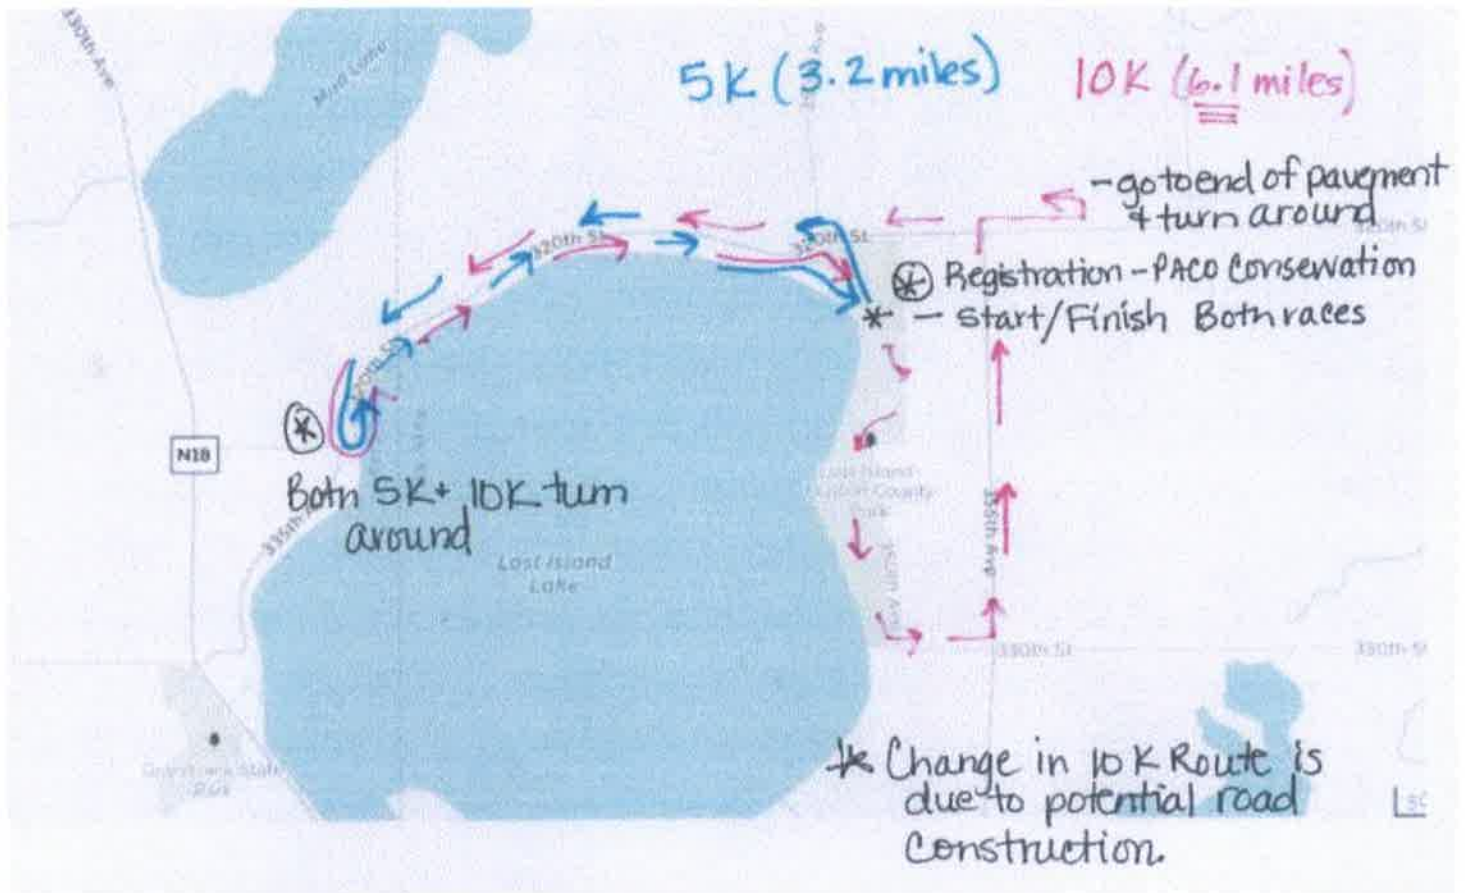 330th Ave
Mud Lake
5K (3.2 miles)
10K (6.1 miles)
- go to end of pavement
+ turn around
320th St
320th St
320th St.
Registration - PACO Conservation
* - Start/Finish Both races
N18
Both 5K + 10K turn
around
335th
Lost Island
Lake
Lost Island
County
Park
355th Ave
330th St
330th St
State
* Change in 10K Route is
due to potential road
construction.